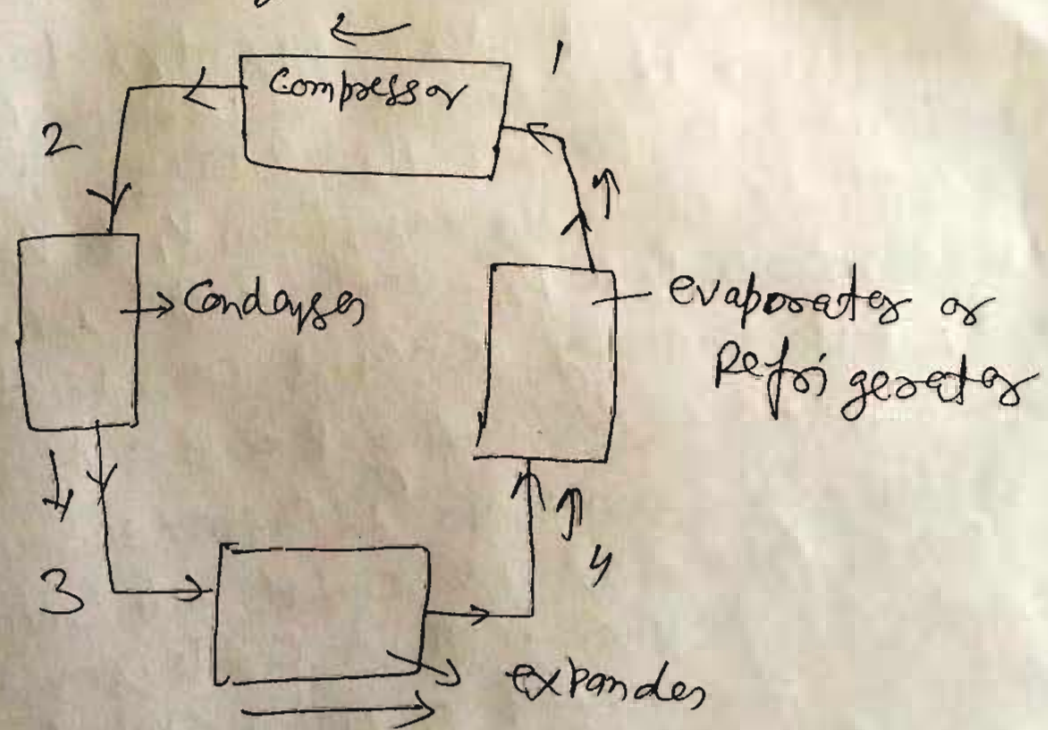 1
Compressor
2
Condenser
evaporator or
Refrigerator
4
3
expander